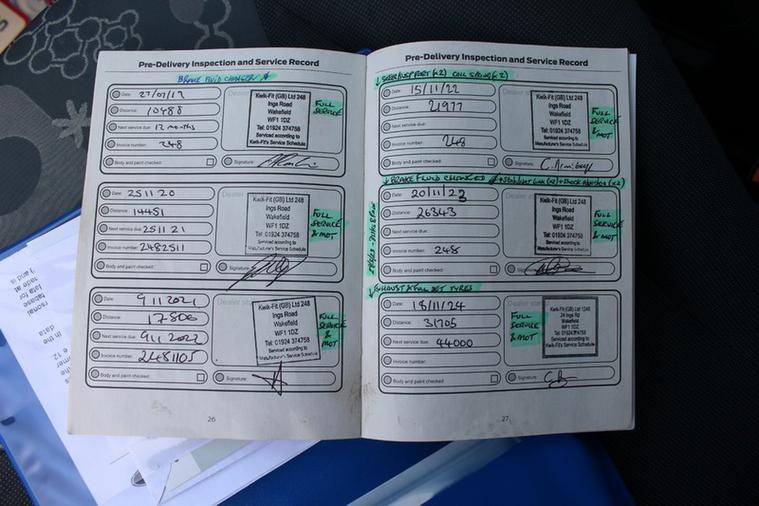 Pre-Delivery Inspection and Service Record
BRAKE FLUID CHANGED
Date: 27/07/19
Distance: 10488
Next service due: 12 months
Invoice number: 248
Body and paint checked:
Kwik-Fit (GB) Ltd 248
Ings Road
Wakefield
WF1 1DZ
Tel: 01924 374758
Serviced according to
Kwik-Fit's Service Schedule
Signature:
FULL
SERVICE
Date: 25 11 20
Distance: 14451
Next service due: 25 11 21
Invoice number: 2482511
Body and paint checked:
Kwik-Fit (GB) Ltd 248
Ings Road
Wakefield
WF1 1DZ
Tel: 01924 374758
Serviced according to
Manufacturer's Service Schedule
Signature:
FULL
SERVICE
& MOT
Date: 9 11 2021
Distance: 17806
Next service due: 9 11 2022
Invoice number: 2481105
Body and paint checked:
Kwik-Fit (GB) Ltd 248
Ings Road
Wakefield
WF1 1DZ
Tel: 01924 374758
Serviced according to
Manufacturer's Service Schedule
Signature:
FULL
SERVICE
& MOT
26
Pre-Delivery Inspection and Service Record
COIL SPRING (x2)
Date: 15/11/22
Distance: 21977
Next service due:
Invoice number: 248
Body and paint checked:
Kwik-Fit (GB) Ltd 248
Ings Road
Wakefield
WF1 1DZ
Tel: 01924 374758
Serviced according to
Kwik-Fit's Service Schedule
Signature:
FULL
SERVICE
& MOT
BRAKE FLUID CHANGED
Date: 20/11/23
Distance: 26343
Next service due:
Invoice number: 248
Body and paint checked:
Kwik-Fit (GB) Ltd 248
Ings Road
Wakefield
WF1 1DZ
Tel: 01924 374758
Serviced according to
Manufacturer's Service Schedule
Signature:
FULL
SERVICE
& MOT
EXHAUST & FULL SET TYRES
Date: 18/11/24
Distance: 31705
Next service due: 44000
Invoice number:
Body and paint checked:
FULL
SERVICE
& MOT
Kwik-Fit (GB) Ltd
Wakefield
WF1 1DZ
Tel: 01924 374758
Serviced according to
Kwik-Fit's Service Schedule
Signature:
27